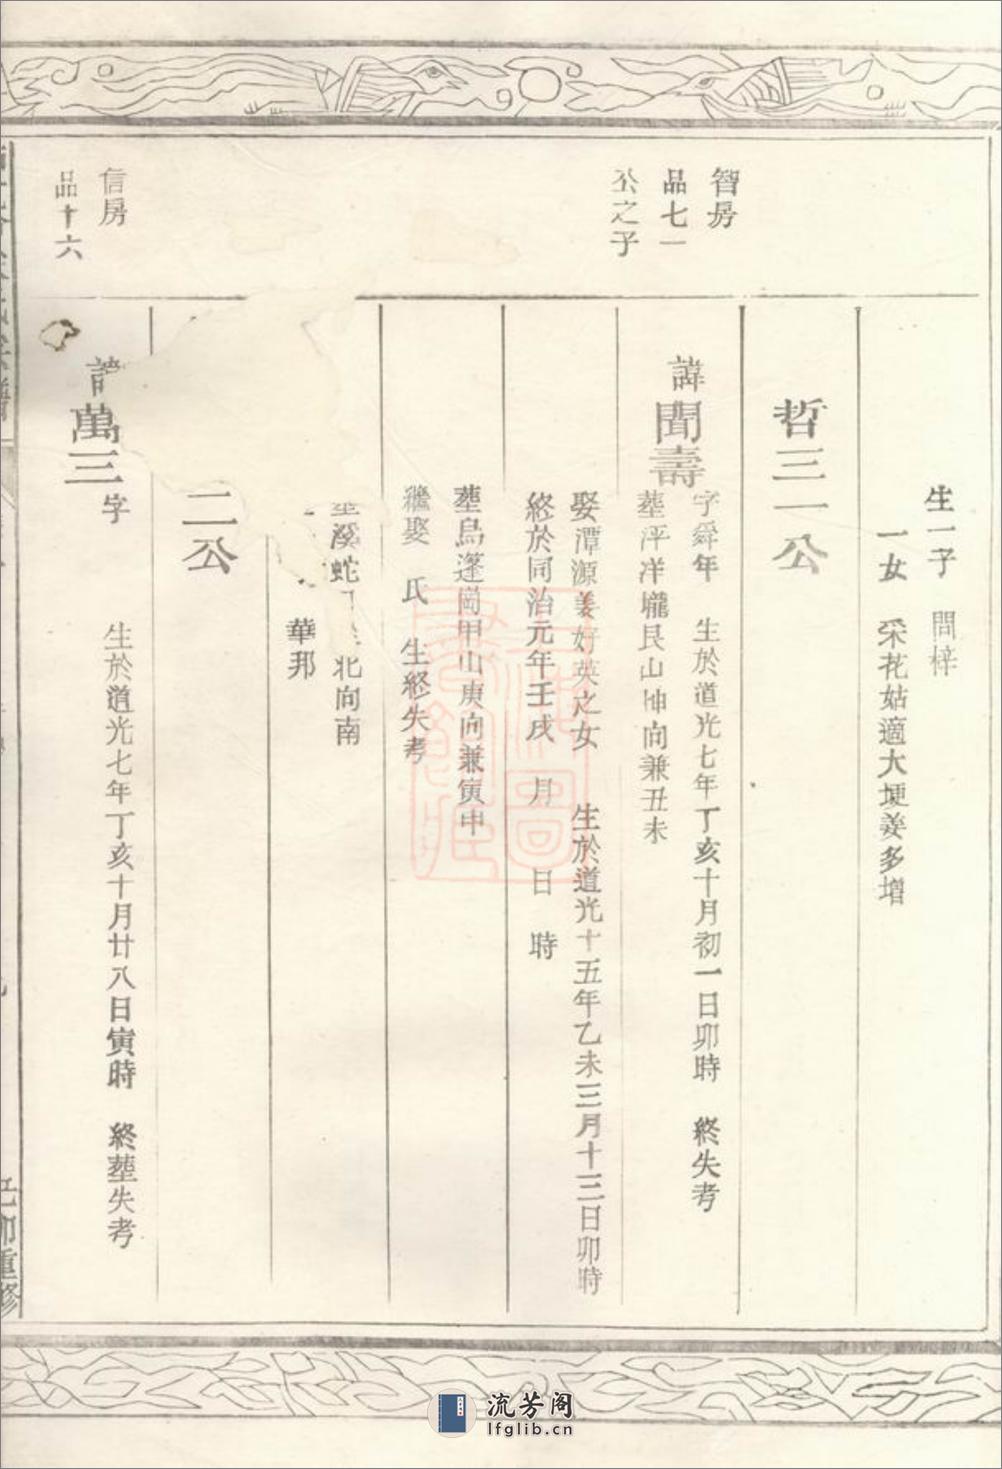 生一子　問梓
一女　采花姑適大埂姜多增
智房
品七一
公之子
哲三一公
諱聞壽
字舜年　生於道光七年丁亥十月初一日卯時　終失考
塟泙洋壠艮山坤向兼丑未
娶潭源姜好英之女　生於道光十五年乙未三月十三日卯時
終於同治元年壬戌　月　日　時
塟烏蓬崗甲山庚向兼寅申
繼娶　氏　生終失考
溪蛇　北向南
華邦
二公
信房
品十六
諱萬三
字　　生於道光七年丁亥十月廿八日寅時　終塟失考
己卯重修
流芳阁
lfglib.cn